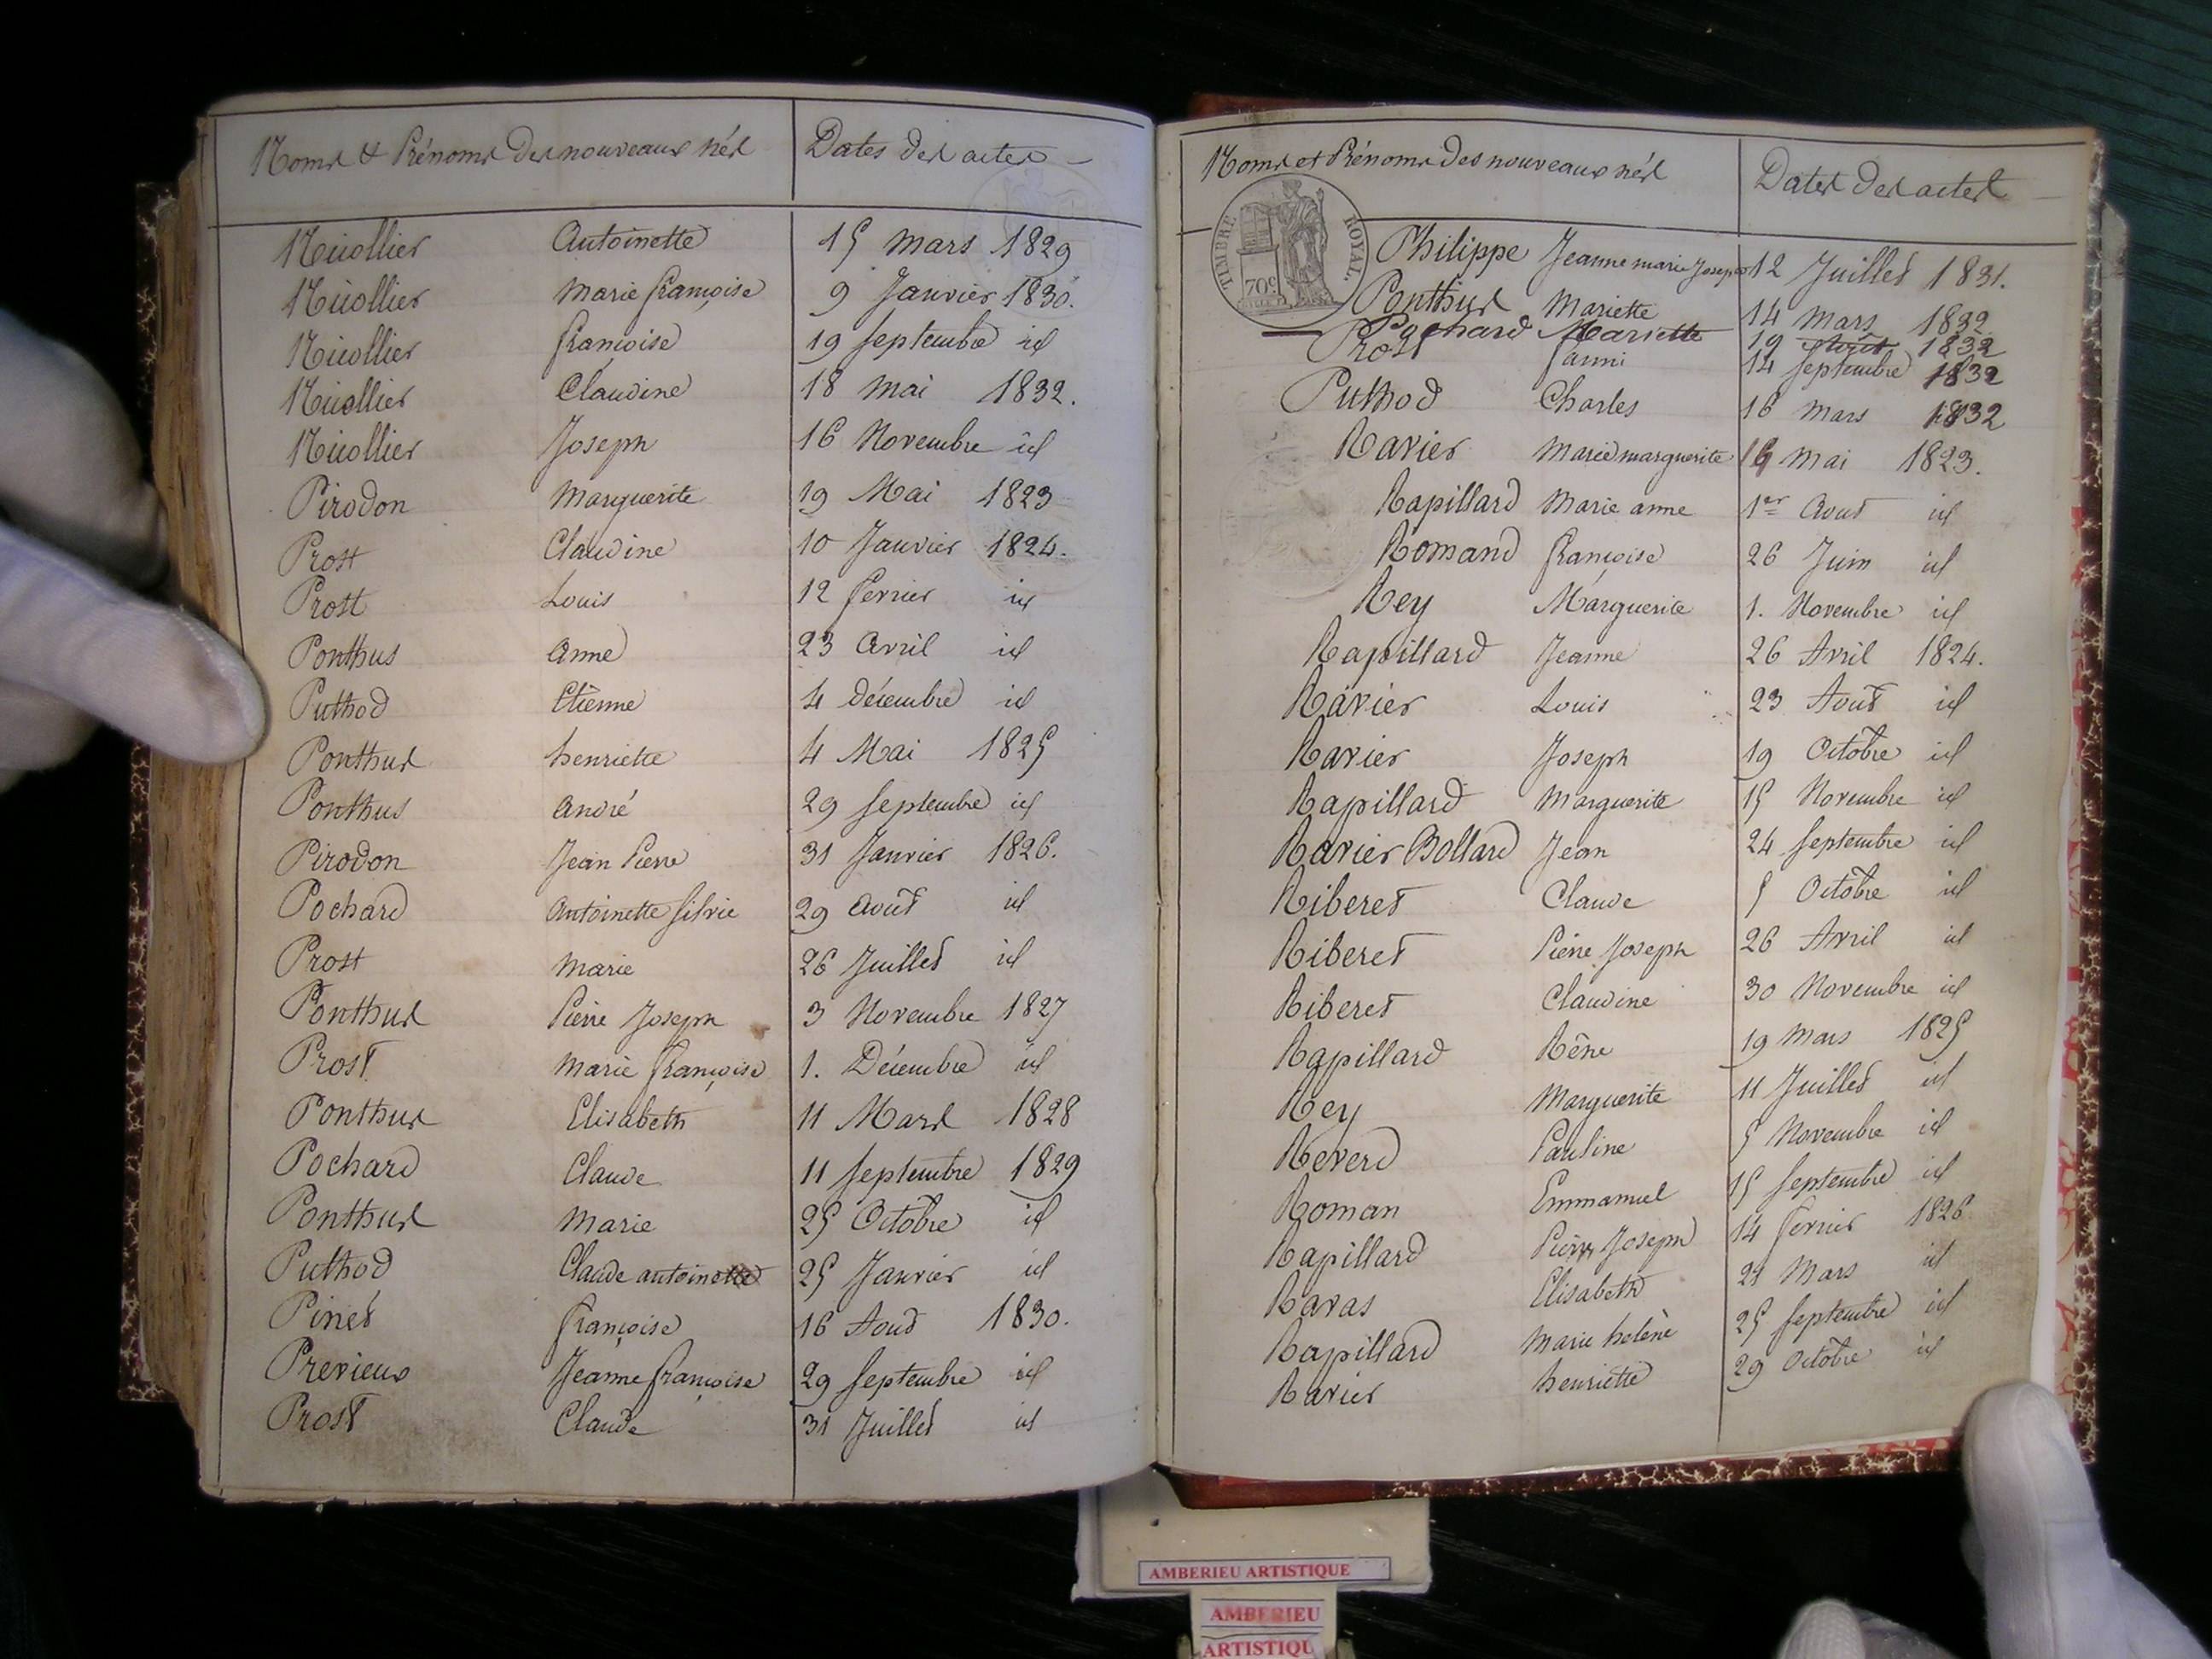 Noms & Prénoms des nouveaux nés Dates des actes
Nicollier Antoinette 15 mars 1829
Nicollier Marie françoise 9 Janvier 1830.
Nicollier françoise 19 septembre id
Nicollier Claudine 18 mai 1832.
Nicollier Joseph 16 Novembre id
Pirodon Marguerite 19 Mai 1823
Prost Claudine 10 Janvier 1824.
Prost Louis 12 fevrier id
Ponthus Anne 23 Avril id
Puthod Etienne 4 décembre id
Ponthus henriette 4 Mai 1825
Ponthus André 29 septembre id
Pirodon Jean Pierre 31 Janvier 1826.
Pochard Antoinette silvie 29 Août id
Prost Marie 26 Juillet id
Ponthus Pierre Joseph 3 Novembre 1827
Prost Marie françoise 1. Décembre id
Ponthus Elisabeth 11 Mars 1828
Pochard Claude 11 septembre 1829
Ponthus Marie 25 Octobre id
Puthod Claude antoinette 25 Janvier id
Pinet françoise 16 Aout 1830.
Previeux Jeanne françoise 29 septembre id
Prost Claude 31 Juillet id
Noms et Prénoms des nouveaux nés Dates des actes
TIMBRE ROYAL.
70c
Philippe Jeanne marie Josephe 12 Juillet 1831.
Ponthus Mariette 14 mars 1832
Pochard Mariette 19 1832
Prost fanni 14 septembre 1832
Puthod Charles 16 mars 1832
Ravier Marie marguerite mai 1823.
Rapillard Marie anne 1er Aout id
Romand françoise 26 Juin id
Rey Marguerite 1. Novembre id
Rapillard Jeanne 26 Avril 1824.
Ravier Louis 23 Août id
Ravier Joseph 19 Octobre id
Rapillard Marguerite 15 Novembre id
Ravier Bollard Jean 24 septembre id
Riberet Claude 5 Octobre id
Riberet Pierre Joseph 26 Avril id
Riberet Claudine 30 Novembre id
Rapillard Rêne 19 Mars 1825
Rey Marguerite 11 Juillet id
Reverd Pauline 5 Novembre id
Roman Emmanuel 15 septembre id
Rapillard Pierre Joseph 14 fevrier 1826
Ravas Elisabeth 21 Mars id
Rapillard Marie helène 25 septembre id
Ravier henriette 29 Octobre id
AMBERIEU ARTISTIQUE
AMBERIEU
ARTISTIQU